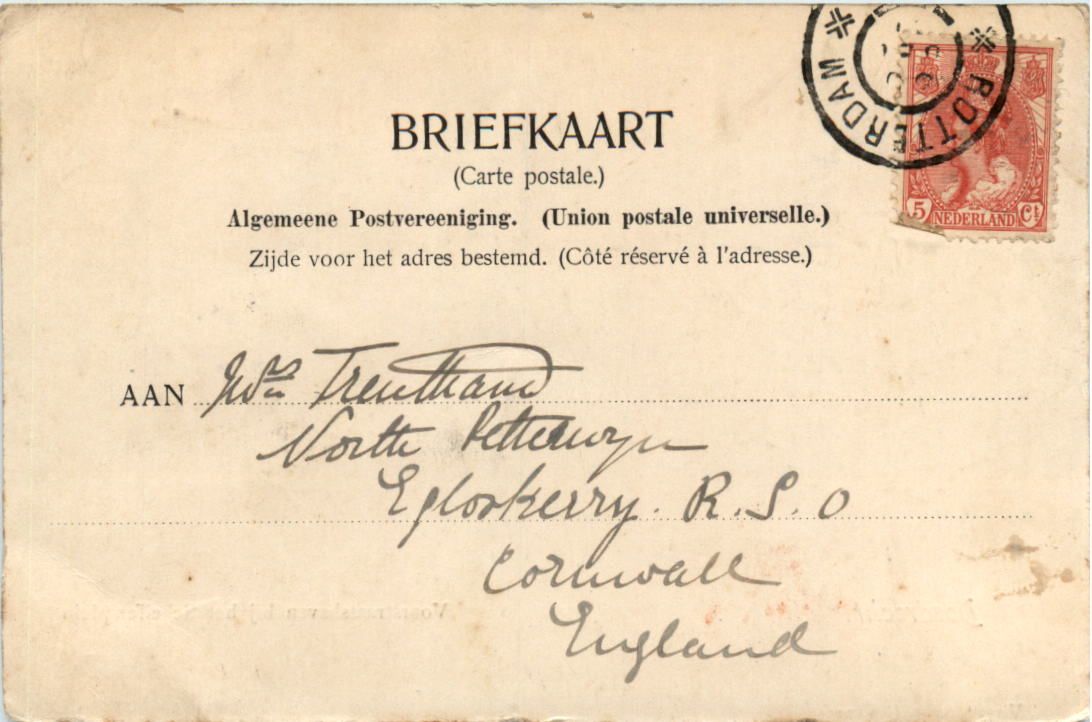 ROTTERDAM
5 NEDERLAND Ct
BRIEFKAART
(Carte postale.)
Algemeene Postvereeniging. (Union postale universelle.)
Zijde voor het adres bestemd. (Côté réservé à l'adresse.)
AAN Mrs Trentham
North Petterwyn
Egloskerry. R. S. O
Cornwall
England